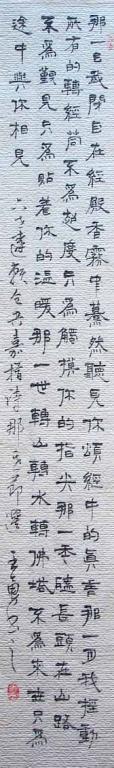 那一日我閉目在經殿香霧中驀然聽見你頌經中的真言那一月我搖動
所有的轉經筒不為超度只為觸摸你的指尖那一年磕長頭在山路
不為覲見只為貼着你的溫暖那一世轉山轉水轉佛塔不為來世只為
途中與你相見 六世達賴倉央嘉措詩那一天節選 王勇書